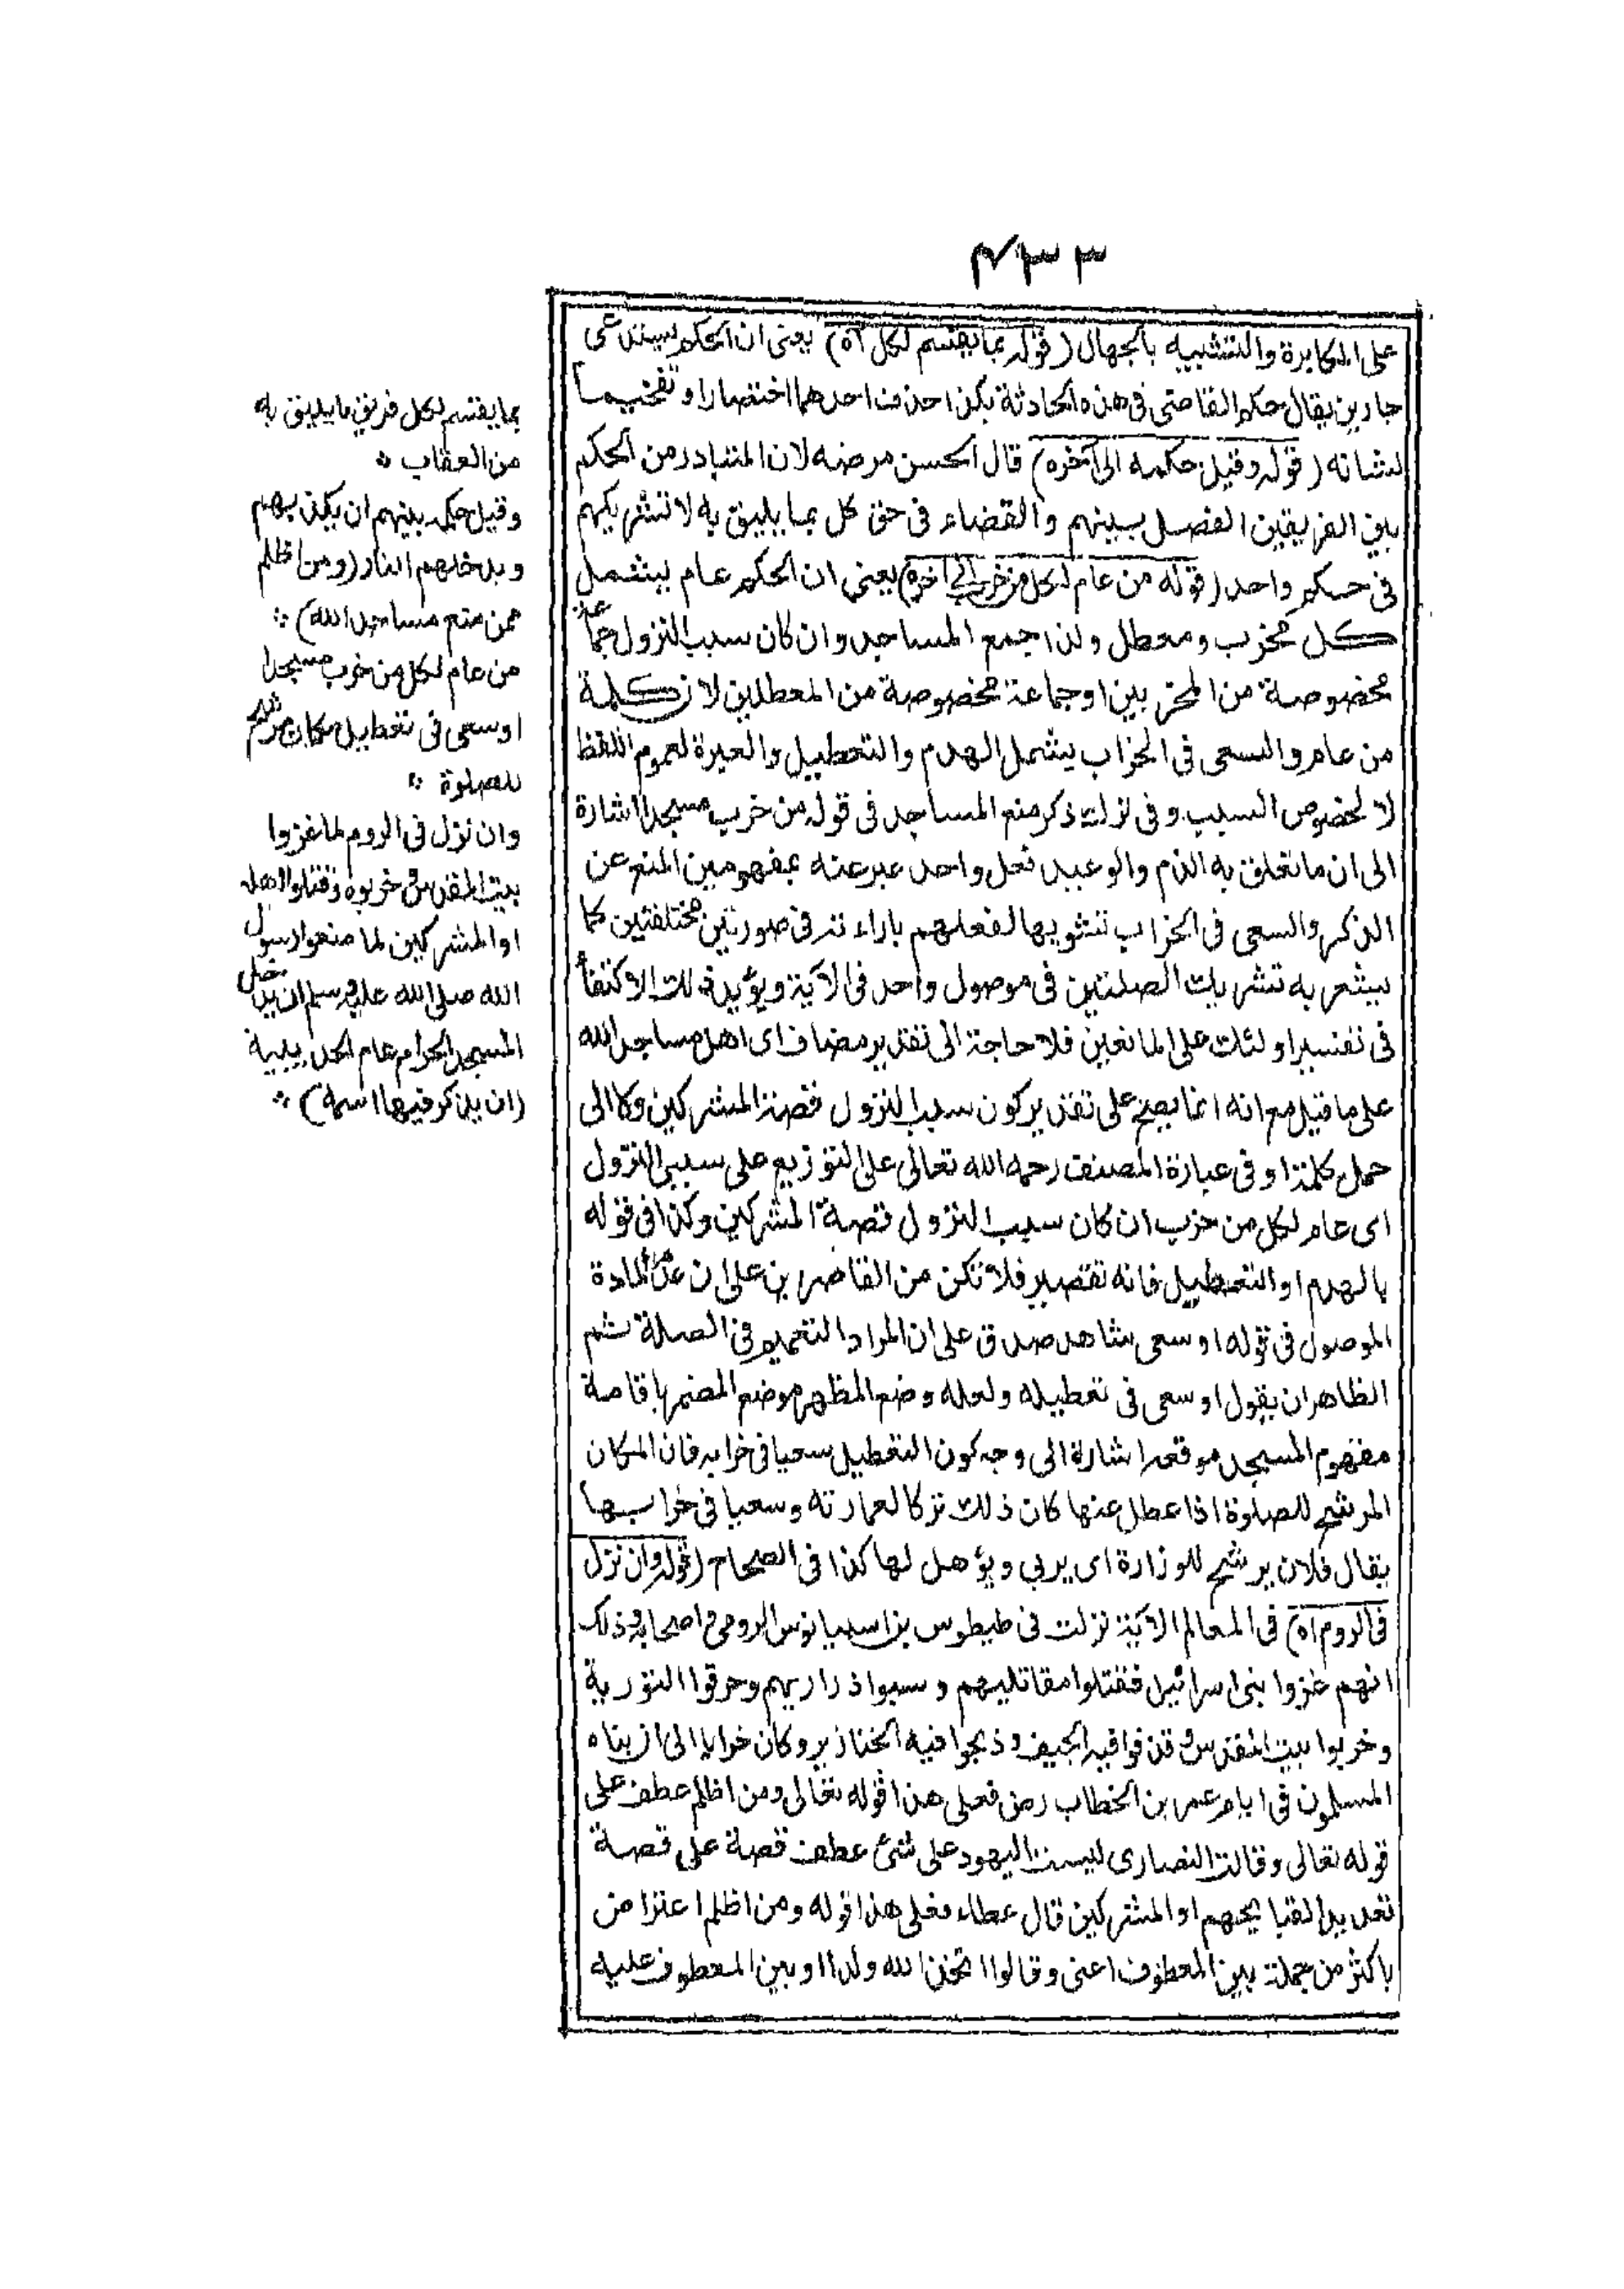 ٤٣٣
على المكابرة والتشبيه بالجهال (قوله بما يقسم لكل آه) يعنى ان الحكم يستدعى
جارين يقال حكم القاضى فى هذه الحادثة بكذا حذف احدهما اختصارا وتفخيما
لشانه (قوله وقيل حكمه الى آخره) قال الحسن مرضه لان المتبادر من الحكم
بين الفريقين الفصل بينهم والقضاء فى حق كل بما يليق به لا تشريكهم
فى حكم واحد (قوله من عام لكل من خرب الى آخره) يعنى ان الحكم عام يشمل
كل مخرب ومعطل ولذا جمع المساجد وان كان سبب النزول جماعة
مخصوصة من المخربين او جماعة مخصوصة من المعطلين لان كلمة
من عام والسعى فى الخراب يشمل الهدم والتعطيل والعبرة لعموم اللفظ
لا لخصوص السبب وفى ترك ذكر منع المساجد فى قوله من خرب مسجدا اشارة
الى ان ما تعلق به الذم والوعيد فعل واحد عبر عنه بمفهومين المنع عن
الذكر والسعى فى الخراب تشويها لفعلهم باراءته فى صورتين مختلفتين كما
يشعر به تشريك الصلتين فى موصول واحد فى الآية ويؤيد ذلك الاكتفاء
فى تفسير اولئك على المانعين فلا حاجة الى تقدير مضاف اى اهل مساجد الله
على ما قيل مع انه انما يصح على تقدير كون سبب النزول قصة المشركين وكا الى
حمل كلمة او فى عبارة المصنف رحمه الله تعالى على التوزيع على سببى النزول
اى عام لكل من خرب ان كان سبب النزول قصة المشركين وكذا فى قوله
بالهدم او التعطيل فانه تقصير فلا تكن من القاصرين على ان عدم المادة
الموصول فى قوله او سعى شاهد صدق على ان المراد التعميم فى الصلة ثم
الظاهر ان يقول او سعى فى تعطيله ولعله وضع المظهر موضع المضمر باقامة
مفهوم المسجد موقعه اشارة الى وجه كون التعطيل سعيا فى خرابه فان المكان
المرشح للصلوة اذا عطل عنها كان ذلك تركا لعمارته وسعيا فى خرابها
يقال فلان يرشح للوزارة اى يربى ويؤهل لها كذا فى الصحاح (قوله وان نزل
فى الروم آه) فى المعالم الآية نزلت فى طيطوس بن اسبيانوس الرومى واصحابه وذلك
انهم غزوا بنى اسرائيل فقتلوا مقاتليهم وسبوا ذراريهم وحرقوا التورية
وخربوا بيت المقدس وقذفوا فيه الجيف وذبحوا فيه الخنازير وكان خرابا الى ان بناه
المسلمون فى ايام عمر بن الخطاب رض فعلى هذا قوله تعالى ومن اظلم عطف على
قوله تعالى وقالت النصارى ليست اليهود على شئ عطف قصة على قصة
تعديد القبايحهم او المشركين قال عطاء فعلى هذا قوله ومن اظلم اعتراض
باكثر من جملة بين المعطوف اعنى وقالوا اتخذ الله ولدا وبين المعطوف عليه
بما يقسم لكل فريق ما يليق به
من العقاب
وقيل حكمه بينهم ان يكذبهم
ويدخلهم النار (ومن اظلم
ممن منع مساجد الله)
من عام لكل من خرب مسجدا
او سعى فى تعطيل مكان مرشح
للصلوة
وان نزل فى الروم لما غزوا
بيت المقدس وخربوه وقتلوا اهله
او المشركين لما منعوا رسول
الله صلى الله عليه وسلم ان يدخل
المسجد الحرام عام الحديبية
(ان يذكر فيها اسمه)